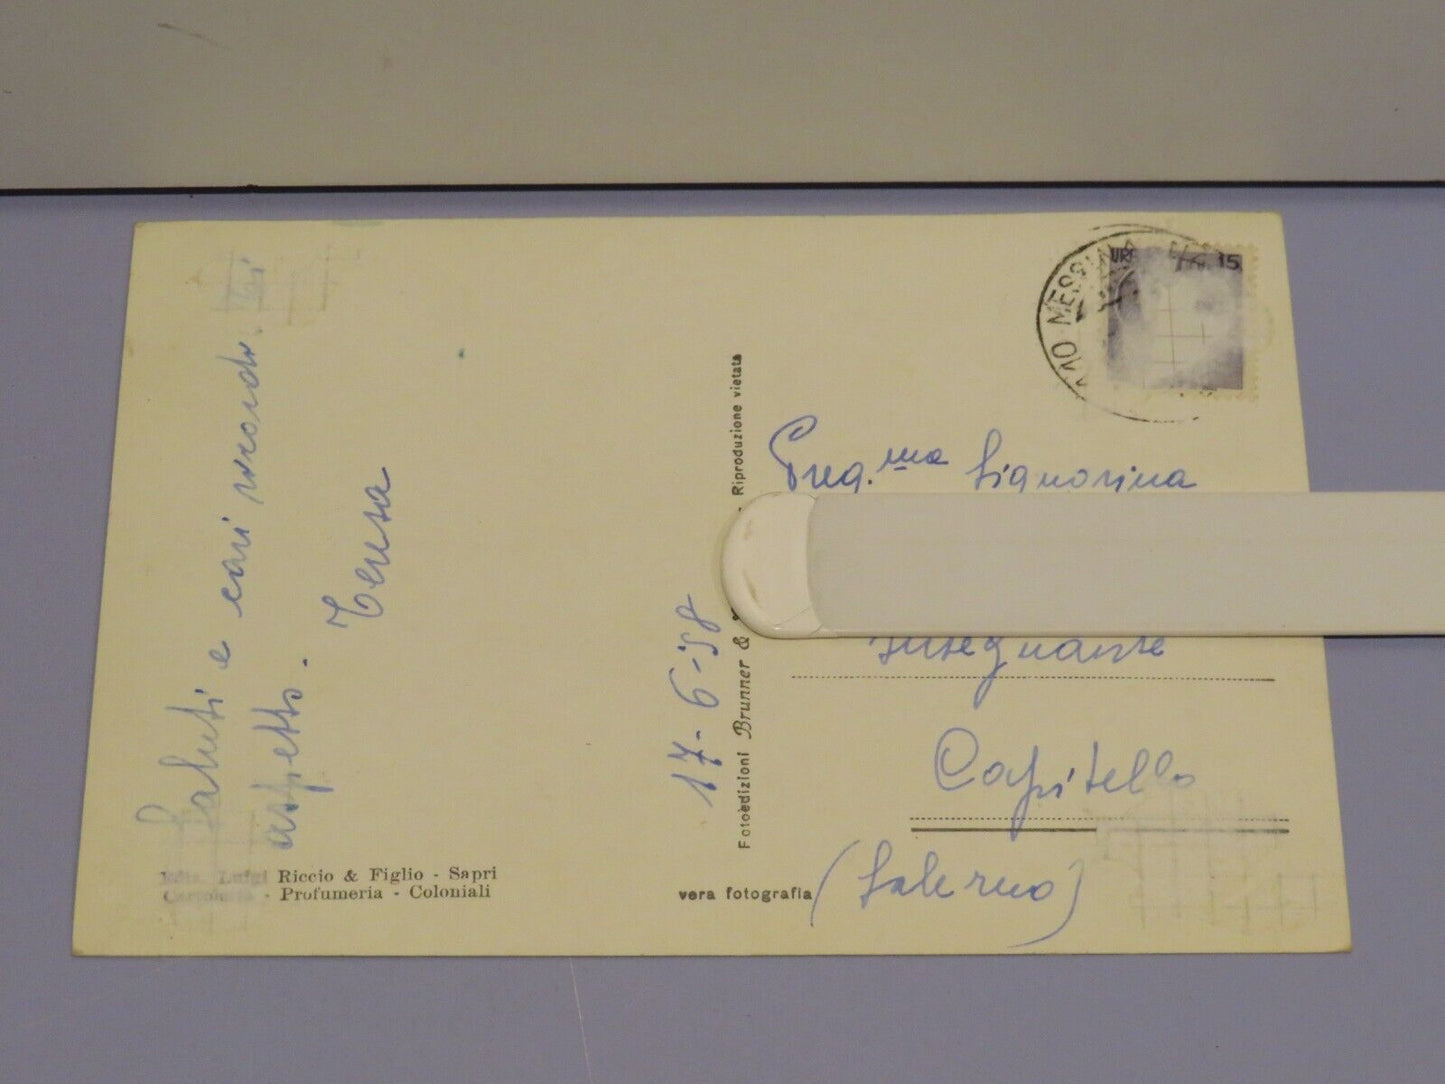 Saluti e cari ricordi. Vi
aspetto.
Teresa
17-6-58
Ediz. Luigi Riccio & Figlio - Sapri
Cartoleria - Profumeria - Coloniali
Fotoedizioni Brunner &
Riproduzione vietata
vera fotografia
110 MESSINA
LIRE 15
Preg.ma Signorina
Insegnante
Capitello
(Salerno)